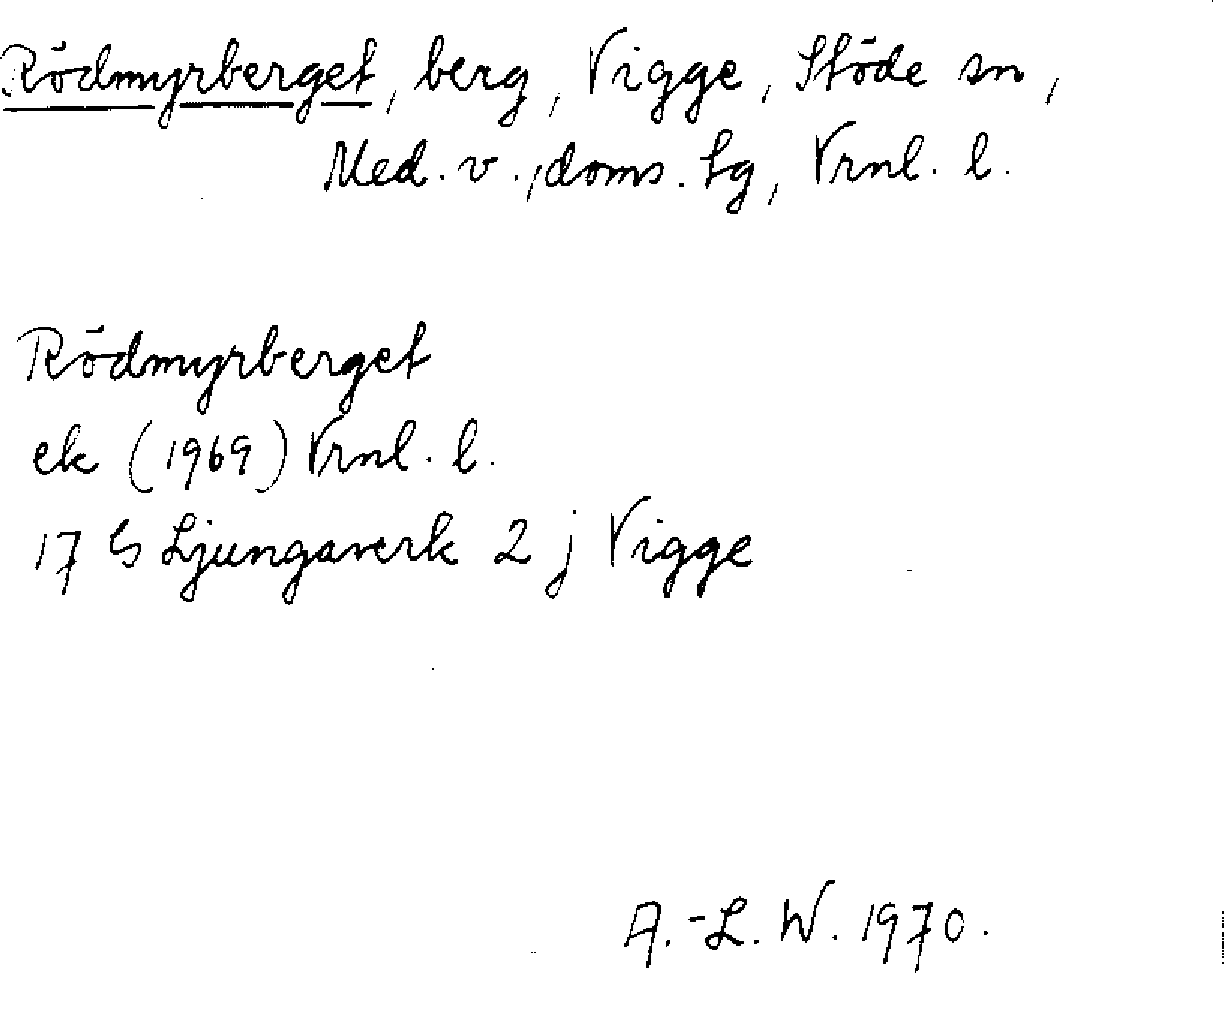 Rödmyrberget, berg, Vigge, Stöde sn,
Med. v., doms. tg, Vrnl. l.
Rödmyrberget
ek (1969) Vrnl. l.
17 G Ljungaverk 2 j Vigge
A.-L. W. 1970.